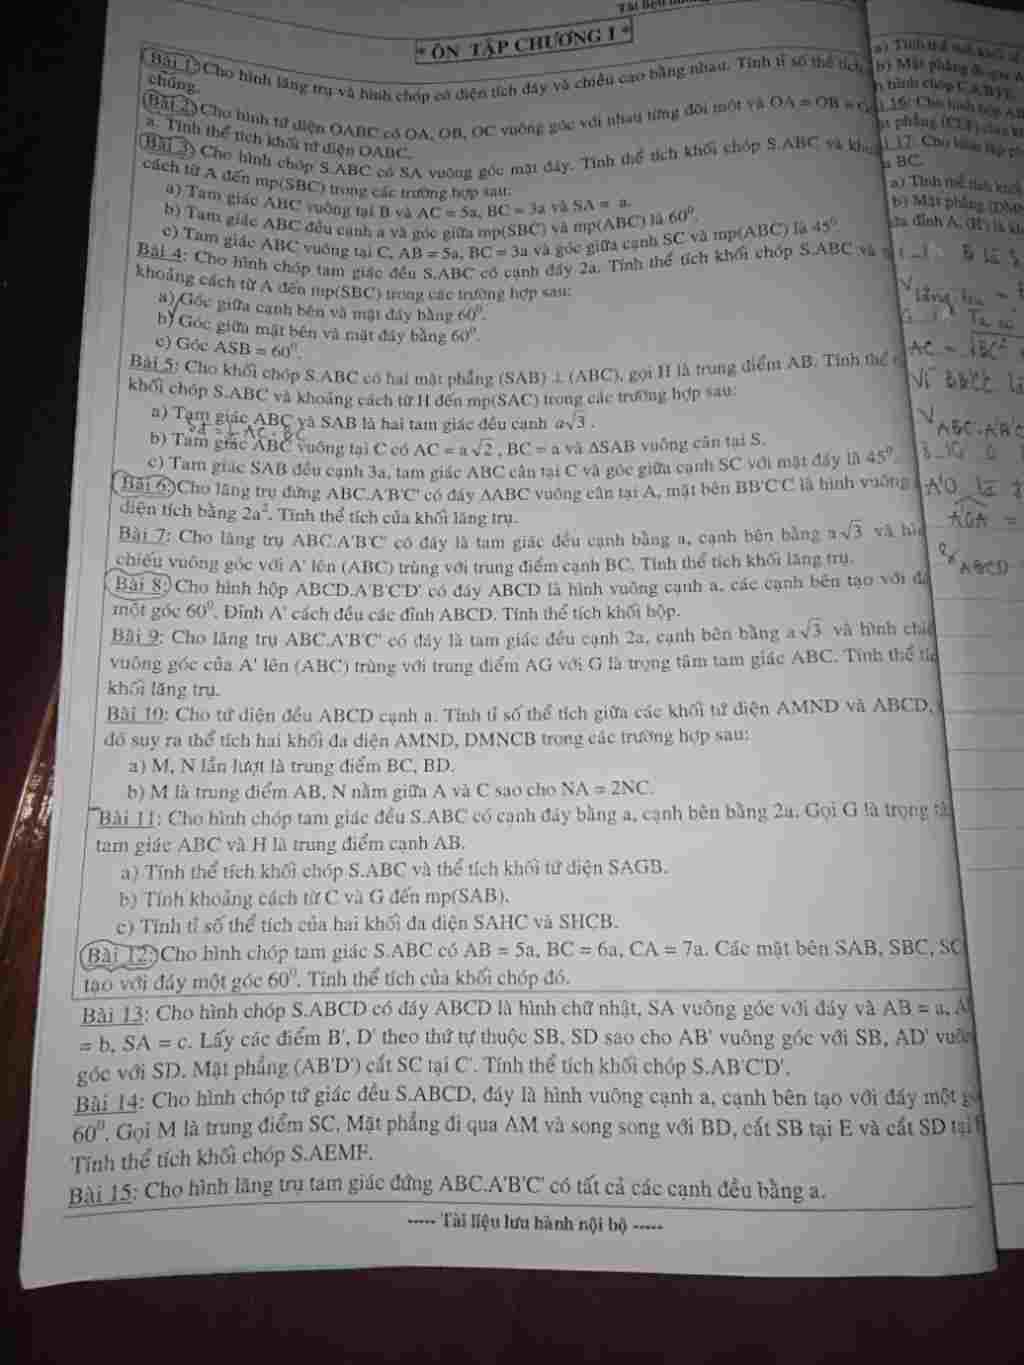 * ÔN TẬP CHƯƠNG I *
Bài 1: Cho hình lăng trụ và hình chóp có diện tích đáy và chiều cao bằng nhau. Tính tỉ số thể tích
chúng.
Bài 2: Cho hình tứ diện OABC có OA, OB, OC vuông góc với nhau từng đôi một và OA = OB =
a. Tính thể tích khối tứ diện OABC.
Bài 3: Cho hình chóp S.ABC có SA vuông góc mặt đáy. Tính thể tích khối chóp S.ABC và
cách từ A đến mp(SBC) trong các trường hợp sau:
a) Tam giác ABC vuông tại B và AC = 5a, BC = 3a và SA = a.
b) Tam giác ABC đều cạnh a và góc giữa mp(SBC) và mp(ABC) là 60⁰.
c) Tam giác ABC vuông tại C, AB = 5a, BC = 3a và góc giữa cạnh SC và mp(ABC) là 45⁰.
Bài 4: Cho hình chóp tam giác đều S.ABC có cạnh đáy 2a. Tính thể tích khối chóp S.ABC và
khoảng cách từ A đến mp(SBC) trong các trường hợp sau:
a) Góc giữa cạnh bên và mặt đáy bằng 60⁰.
b) Góc giữa mặt bên và mặt đáy bằng 60⁰.
c) Góc ASB = 60⁰.
Bài 5: Cho khối chóp S.ABC có hai mặt phẳng (SAB) ⊥ (ABC), gọi H là trung điểm AB. Tính thể
khối chóp S.ABC và khoảng cách từ H đến mp(SAC) trong các trường hợp sau:
a) Tam giác ABC và SAB là hai tam giác đều cạnh a√3.
b) Tam giác ABC vuông tại C có AC = a√2, BC = a và ΔSAB vuông cân tại S.
c) Tam giác SAB đều cạnh 3a, tam giác ABC cân tại C và góc giữa cạnh SC với mặt đáy là 45⁰.
Bài 6: Cho lăng trụ đứng ABC.A'B'C' có đáy ΔABC vuông cân tại A, mặt bên BB'C'C là hình vuông
diện tích bằng 2a². Tính thể tích của khối lăng trụ.
Bài 7: Cho lăng trụ ABC.A'B'C' có đáy là tam giác đều cạnh bằng a, cạnh bên bằng a√3 và
chiếu vuông góc với A' lên (ABC) trùng với trung điểm cạnh BC. Tính thể tích khối lăng trụ.
Bài 8: Cho hình hộp ABCD.A'B'C'D' có đáy ABCD là hình vuông cạnh a, các cạnh bên tạo với
một góc 60⁰. Đỉnh A' cách đều các đỉnh ABCD. Tính thể tích khối hộp.
Bài 9: Cho lăng trụ ABC.A'B'C' có đáy là tam giác đều cạnh 2a, cạnh bên bằng a√3 và hình
vuông góc của A' lên (ABC) trùng với trung điểm AG với G là trọng tâm tam giác ABC. Tính thể
khối lăng trụ.
Bài 10: Cho tứ diện đều ABCD cạnh a. Tính tỉ số thể tích giữa các khối tứ diện AMND và ABCD,
đó suy ra thể tích hai khối đa diện AMND, DMNCB trong các trường hợp sau:
a) M, N lần lượt là trung điểm BC, BD.
b) M là trung điểm AB, N nằm giữa A và C sao cho NA = 2NC.
Bài 11: Cho hình chóp tam giác đều S.ABC có cạnh đáy bằng a, cạnh bên bằng 2a. Gọi G là trọng
tam giác ABC và H là trung điểm cạnh AB.
a) Tính thể tích khối chóp S.ABC và thể tích khối tứ diện SAGB.
b) Tính khoảng cách từ C và G đến mp(SAB).
c) Tính tỉ số thể tích của hai khối đa diện SAHC và SHCB.
Bài 12: Cho hình chóp tam giác S.ABC có AB = 5a, BC = 6a, CA = 7a. Các mặt bên SAB, SBC,
tạo với đáy một góc 60⁰. Tính thể tích của khối chóp đó.
Bài 13: Cho hình chóp S.ABCD có đáy ABCD là hình chữ nhật, SA vuông góc với đáy và AB = a,
= b, SA = c. Lấy các điểm B', D' theo thứ tự thuộc SB, SD sao cho AB' vuông góc với SB, AD'
góc với SD. Mặt phẳng (AB'D') cắt SC tại C'. Tính thể tích khối chóp S.AB'C'D'.
Bài 14: Cho hình chóp tứ giác đều S.ABCD, đáy là hình vuông cạnh a, cạnh bên tạo với đáy một
60⁰. Gọi M là trung điểm SC, Mặt phẳng đi qua AM và song song với BD, cắt SB tại E và cắt SD tại
Tính thể tích khối chóp S.AEMF.
Bài 15: Cho hình lăng trụ tam giác đứng ABC.A'B'C' có tất cả các cạnh đều bằng a.
----- Tài liệu lưu hành nội bộ -----